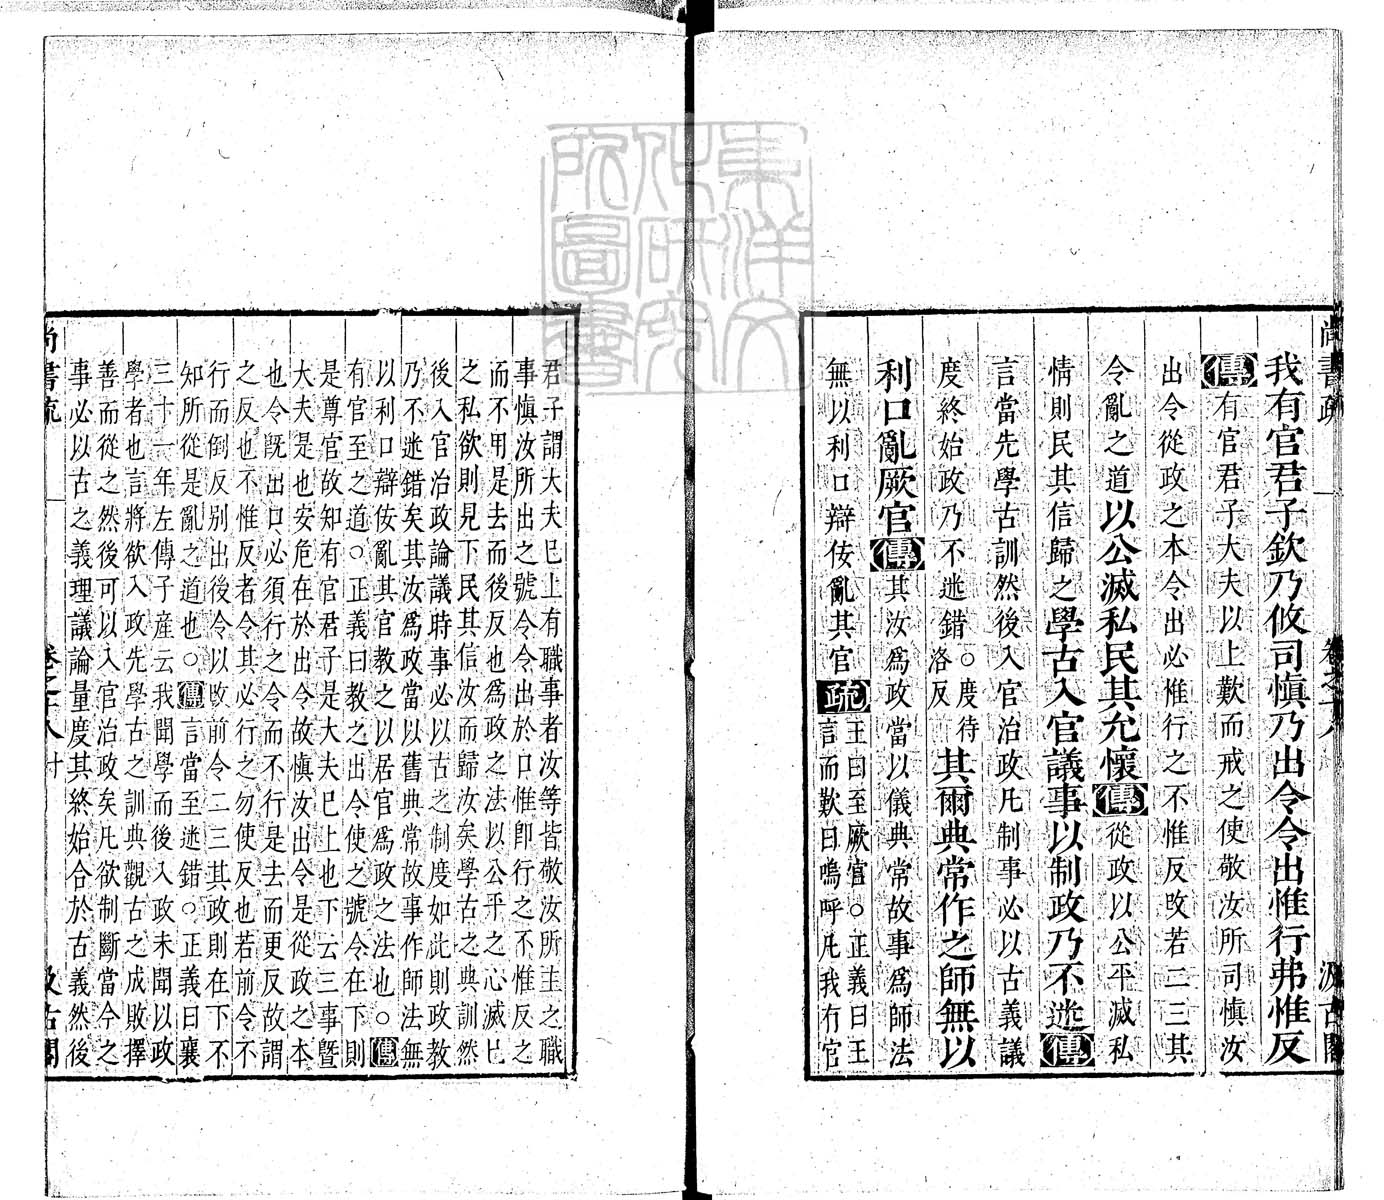 尚書疏 卷之十八 汲古閣
我有官君子欽乃攸司慎乃出令令出惟行弗惟反
傳有官君子大夫以上歎而戒之使敬汝所司慎汝
出令從政之本令出必惟行之不惟反改若二三其
令亂之道以公滅私民其允懷傳從政以公平滅私
情則民其信歸之學古入官議事以制政乃不迷傳
言當先學古訓然後入官治政凡制事必以古義議
度終始政乃不迷錯○度待洛反其爾典常作之師無以
利口亂厥官傳其汝為政當以儀典常故事為師法
無以利口辯佞亂其官疏王曰至厥官○正義曰王言而歎曰嗚呼凡我有官
君子謂大夫已上有職事者汝等皆敬汝所主之職
事慎汝所出之號令令出於口惟即行之不惟反之
而不用是去而後反也為政之法以公平之心滅已
之私欲則見下民其信汝而歸汝矣學古之典訓然
後入官治政論議時事必以古之制度如此則政教
乃不迷錯矣其汝為政當以舊典常故事作師法無
以利口辯佞亂其官教之以居官為政之法也○傳
有官至之道○正義曰教之出令使之號令在下則
是尊官故知有官君子是大夫已上也下云三事暨
大夫是也安危在於出令故慎汝出令是從政之本
也令既出口必須行之令而不行是去而更反故謂
之反也不惟反者令其必行之勿使反也若前令不
行而倒反別出後令以改前令二三其政則在下不
知所從是亂之道也○傳言當至迷錯○正義曰襄
三十一年左傳子產云我聞學而後入政未聞以政
學者也言將欲入政先學古之訓典觀古之成敗擇
善而從之然後可以入官治政矣凡欲制斷當今之
事必以古之義理議論量度其終始合於古義然後
尚書疏 卷之十八 汲古閣
東洋文化研究所圖書